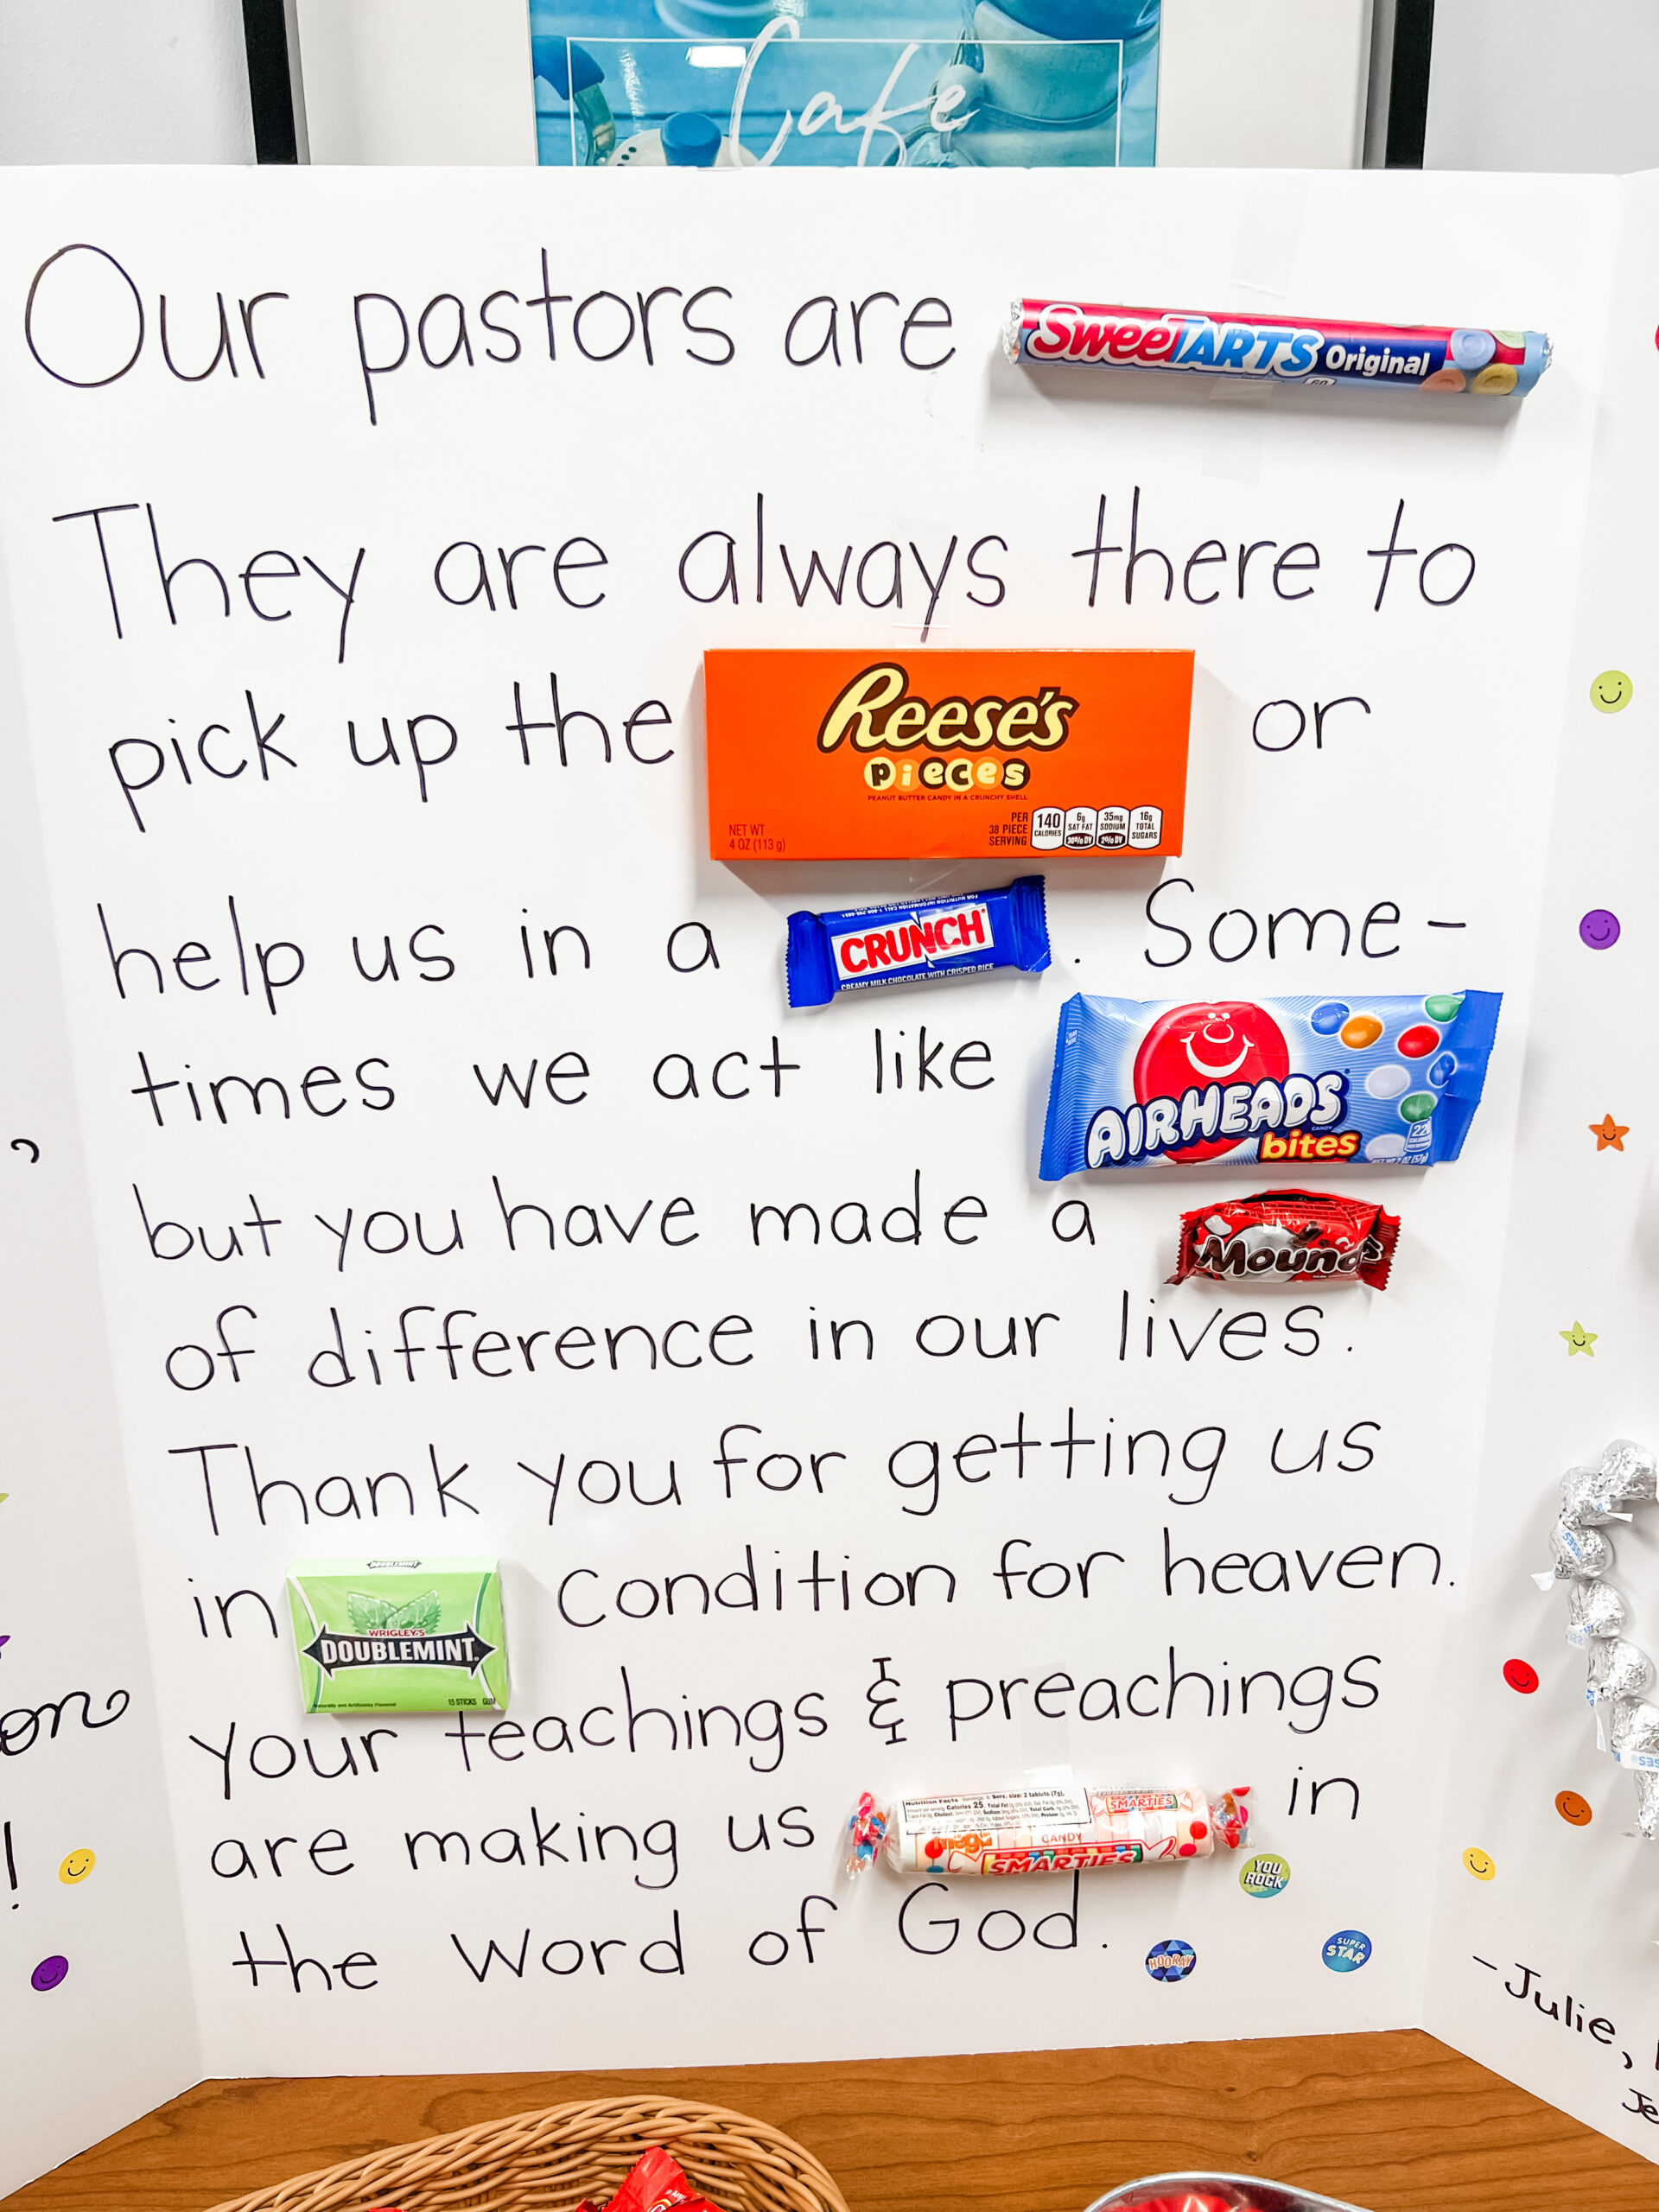 Cafe
Our pastors are SweeTARTS Original
They are always there to
pick up the Reese's
pieces
PEANUT BUTTER CANDY IN A CRUNCHY SHELL
NET WT
4 OZ (113 g)
PER
38 PIECE
SERVING
140 CALORIES
6g SAT FAT 30% DV
35mg SODIUM 2% DV
16g TOTAL SUGARS
or
help us in a CRUNCH . Some-
CREAMY MILK CHOCOLATE WITH CRISPED RICE
times we act like AIRHEADS
CANDY
bites
but you have made a Mounds
of difference in our lives.
Thank you for getting us
in WRIGLEY'S
DOUBLEMINT
Naturally and Artificially Flavored
15 STICKS GUM
condition for heaven.
your teachings & preachings
are making us SMARTIES in
CANDY
SMARTIES
the word of God.
YOU ROCK
HOORAY
SUPER STAR
on
!
-Julie,
Je